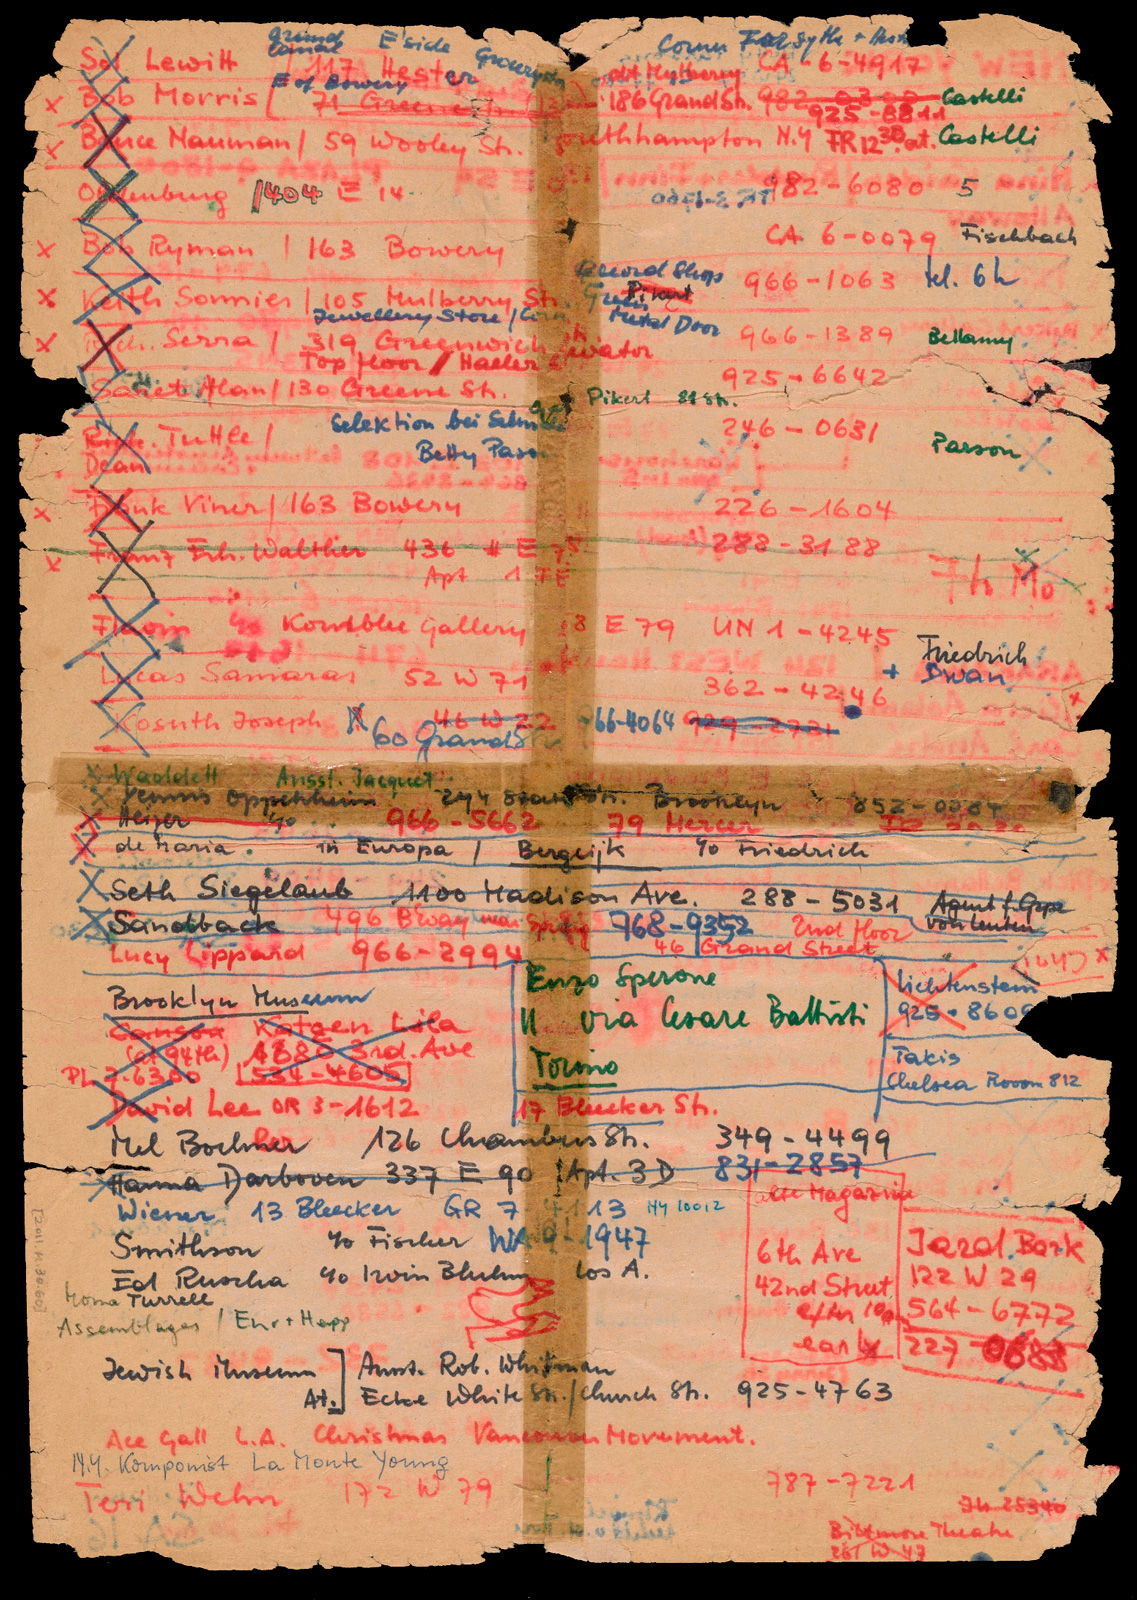 grand canal E side Grocery Corner Forsyth + Hester
Sol Lewitt / 117 Hester CA - 6-4917
E of Bowery
Bob Morris / 71 Greene 186 Grand Str. 982-0300 Castelli
925-8811
Bruce Nauman / 59 Wooley Str. Southhampton N.Y FR 12 30 at. Castelli
Oldenburg / 404 E 14 982-6080 5
Bob Ryman / 163 Bowery CA 6-0079 Fischbach
Keith Sonnier / 105 Mulberry Str. Record Shop 966-1063 tel. 6 h
Jewellery Store / Corn Pikart Metal Door
Rich. Serra / 319 Greenwich 966-1389 Bellamy
Top floor / Haeler elevator
Saret Alan / 130 Greene Str. 925-6642
Pikert 88 Str.
Selektion bei
Rich. Tuttle / 246-0631 Parson
Dean Betty Parson
Frank Viner / 163 Bowery 226-1604
Franz Erh. Walther 436 E 7 288-3188
Apt 1 7 E. 7 h Mo
Flavin c/o Kornblee Gallery 58 E 79 UN 1-4245
Friedrich
+ Dwan
Lucas Samaras 52 W 71 362-4246
Kosuth Joseph 46 W 22 966-4064 929-2731
60 Grand Str
Waddell Ausst. Jacquet
Dennis Oppenheim 294 State Str. Brooklyn 852-0084
Heizer c/o 966-5662 79 Mercer
de Maria. in Europa / Bergeijk c/o Friedrich
Seth Siegelaub 1100 Madison Ave. 288-5031 Agent f. Gppe
Sandback 496 Bway near Spring 768-9352 2nd floor von Leuten
Lucy Lippard 966-2994 46 Grand Street
Enzo Sperone
11 via Cesare Battisti
Torino
Lichtenstein
925-8609
Takis
Chelsea Room 812
Brooklyn Museum
Katzen Lila
(at 94th) 1680 3rd. Ave
PL 7-6300 534-4605
David Lee OR 3-1612 17 Bleecker Str.
Mel Bochner 126 Chambers Str. 349-4499
Hanna Darboven 337 E 90 Apt. 3 D 831-2857
Wiener 13 Bleecker GR 7-4113 NY 10012
Smithson c/o Fischer WA 9-1947
Ed Ruscha c/o Irvin Bluhm Los A.
alte Magazine
6th Ave
42nd Street
early
Jard. Bark
122 W 29
564-6772
227-0688
Moma Turrell
Assemblages / Ehr + Hepp
Jewish Museum Ausst. Rob. Whitman
At. Ecke White Str. / Church Str. 925-4763
Ace Gall L.A. Christmas Vancouver Movement.
N.Y. Komponist La Monte Young
Teri Wehn 172 W 79 787-7221
JU 25340
Biltmore Theatre
261 W 47
[2011.M.30.60]